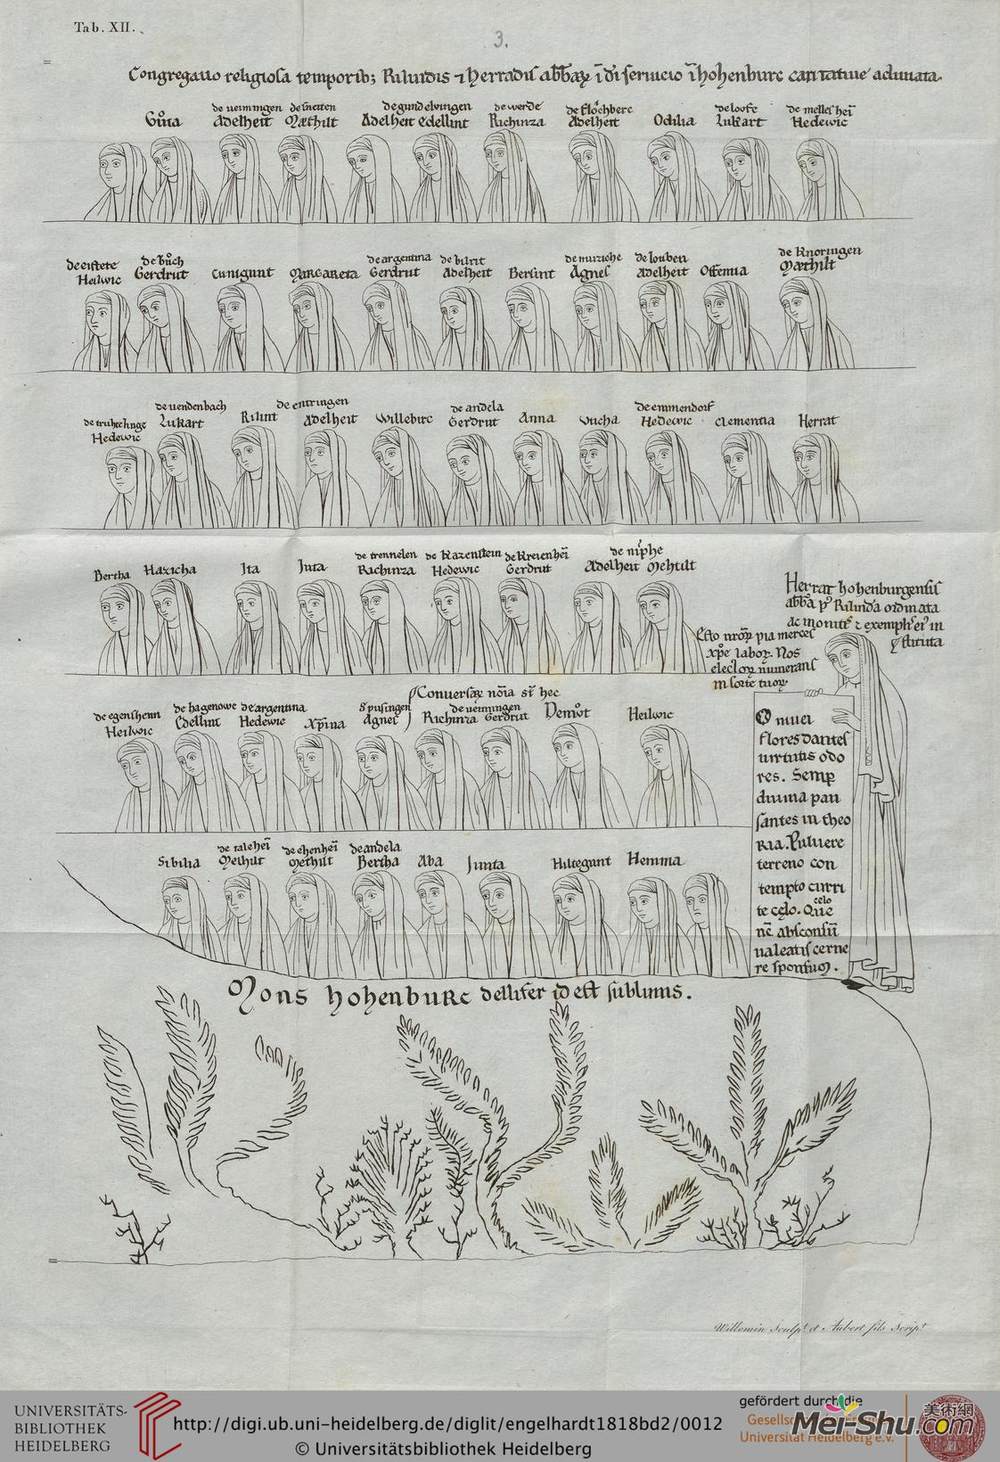 Tab. XII.
3.
Congregatio religiosa temporib; Rilindis ⁊ Herradis abbaꝝ ī dī servicio ī hohenburc caritative adunata.
Gůta
de veimingen
Adelheit
Mæthilt
de gundelvingen
Adelheit Edellint
de werde
Richinza
de flochberc
Adelheit
Odilia
de loufe
Lukart
Hedewic
de eistete
Heilwic
de bůch
Gerdrut
Cunigunt
Margareta
de argentina
Gerdrut
de bilrit
Adelheit
Bersint
Agnes
de louben
Adelheit
Offemia
de Knoringen
Mæthilt
Hedewic
de uendenbach
Lukart
Rilint
de entringen
Adelheit
Willebirc
de andela
Gerdrut
Anna
Vucha
de emmendorf
Hedewic
Clementia
Herrat
Bertha
Hazicha
Ita
Juta
de trennelen
Richinza
de Kazenstein
Hedewic
Gerdrut
de niphe
Adelheit Mehtilt
Herrat hohenburgensis
abba p° Rilindā ordinata
ac monitis ⁊ exemplis eī in
stituta
Esto nroꝝ pia merces
xpe laboꝝ. Nos
electoꝝ numerans
in sorte tuoꝝ.
O nivei
flores dantes
virtutis odo
res. Semp
divina pau
santes in theo
ria. Pulvere
terreno con
tempto curri
te celo. Que
celo
nc absconsū
valeatis cerne
re sponsum.
de egensheim
Heilwic
de hagenowe
Edellint
de argentina
Hedewic
Xpina
Spusingen
Agnes
Conversaꝝ noīa st hec
Richinza
de veimingen
Gerdrut
Demůt
Heilwic
Sibilia
Methilt
Methilt
de andela
Bertha
Aba
Junta
Hiltegunt
Hemma
Mons hohenburc dellifer id est sublimis.
Willemin Sculpt et Aubert fils Script
UNIVERSITÄTS-
BIBLIOTHEK
HEIDELBERG
http://digi.ub.uni-heidelberg.de/diglit/engelhardt1818bd2/0012
© Universitätsbibliothek Heidelberg
gefördert durch die
Universität Heidelberg e.V.
美術網
Mei-Shu.com